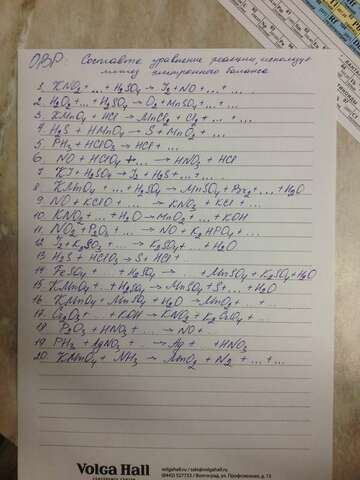 ОВР. Составьте уравнение реакции, используя
метод электронного баланса
1. KNO2 + ... + H2SO4 → I2 + NO + ... + ...
2. H2O2 + ... + H2SO4 → O2 + MnSO4 + ... + ...
3. KMnO4 + HCl → MnCl2 + Cl2 + ... + ...
4. H2S + HMnO4 → S + MnO2 + ...
5. PH3 + HClO3 → HCl + ...
6. NO + HClO4 + ... → HNO3 + HCl
7. KI + H2SO4 → I2 + H2S + ... + ...
8. KMnO4 + ... + H2SO4 → MnSO4 + Br2 + ... + H2O
9. NO + KClO + ... → KNO3 + KCl + ...
10. KNO2 + ... + H2O → MnO2 + ... + KOH
11. NO2 + P2O3 + ... → NO + K2HPO4 + ...
12. I2 + K2SO3 + ... → K2SO4 + ... + H2O
13. H2S + HClO3 → S + HCl + ...
14. FeSO4 + ... + H2SO4 → ... + MnSO4 + K2SO4 + H2O
15. KMnO4 + ... + H2SO4 → MnSO4 + S + ... + H2O
16. KMnO4 + MnSO4 + H2O → MnO2 + ... + ...
17. Cr2O3 + ... + KOH → KNO2 + K2CrO4 + ...
18. P2O3 + HNO3 + ... → NO + ...
19. PH3 + AgNO3 + ... → Ag + ... + HNO3
20. KMnO4 + NH3 → MnO2 + N2 + ... + ...
Volga Hall
CONFERENCE CENTER
volgahall.ru / sale@volgahall.ru
(8442) 527733 / Волгоград, ул. Профсоюзная, д. 13